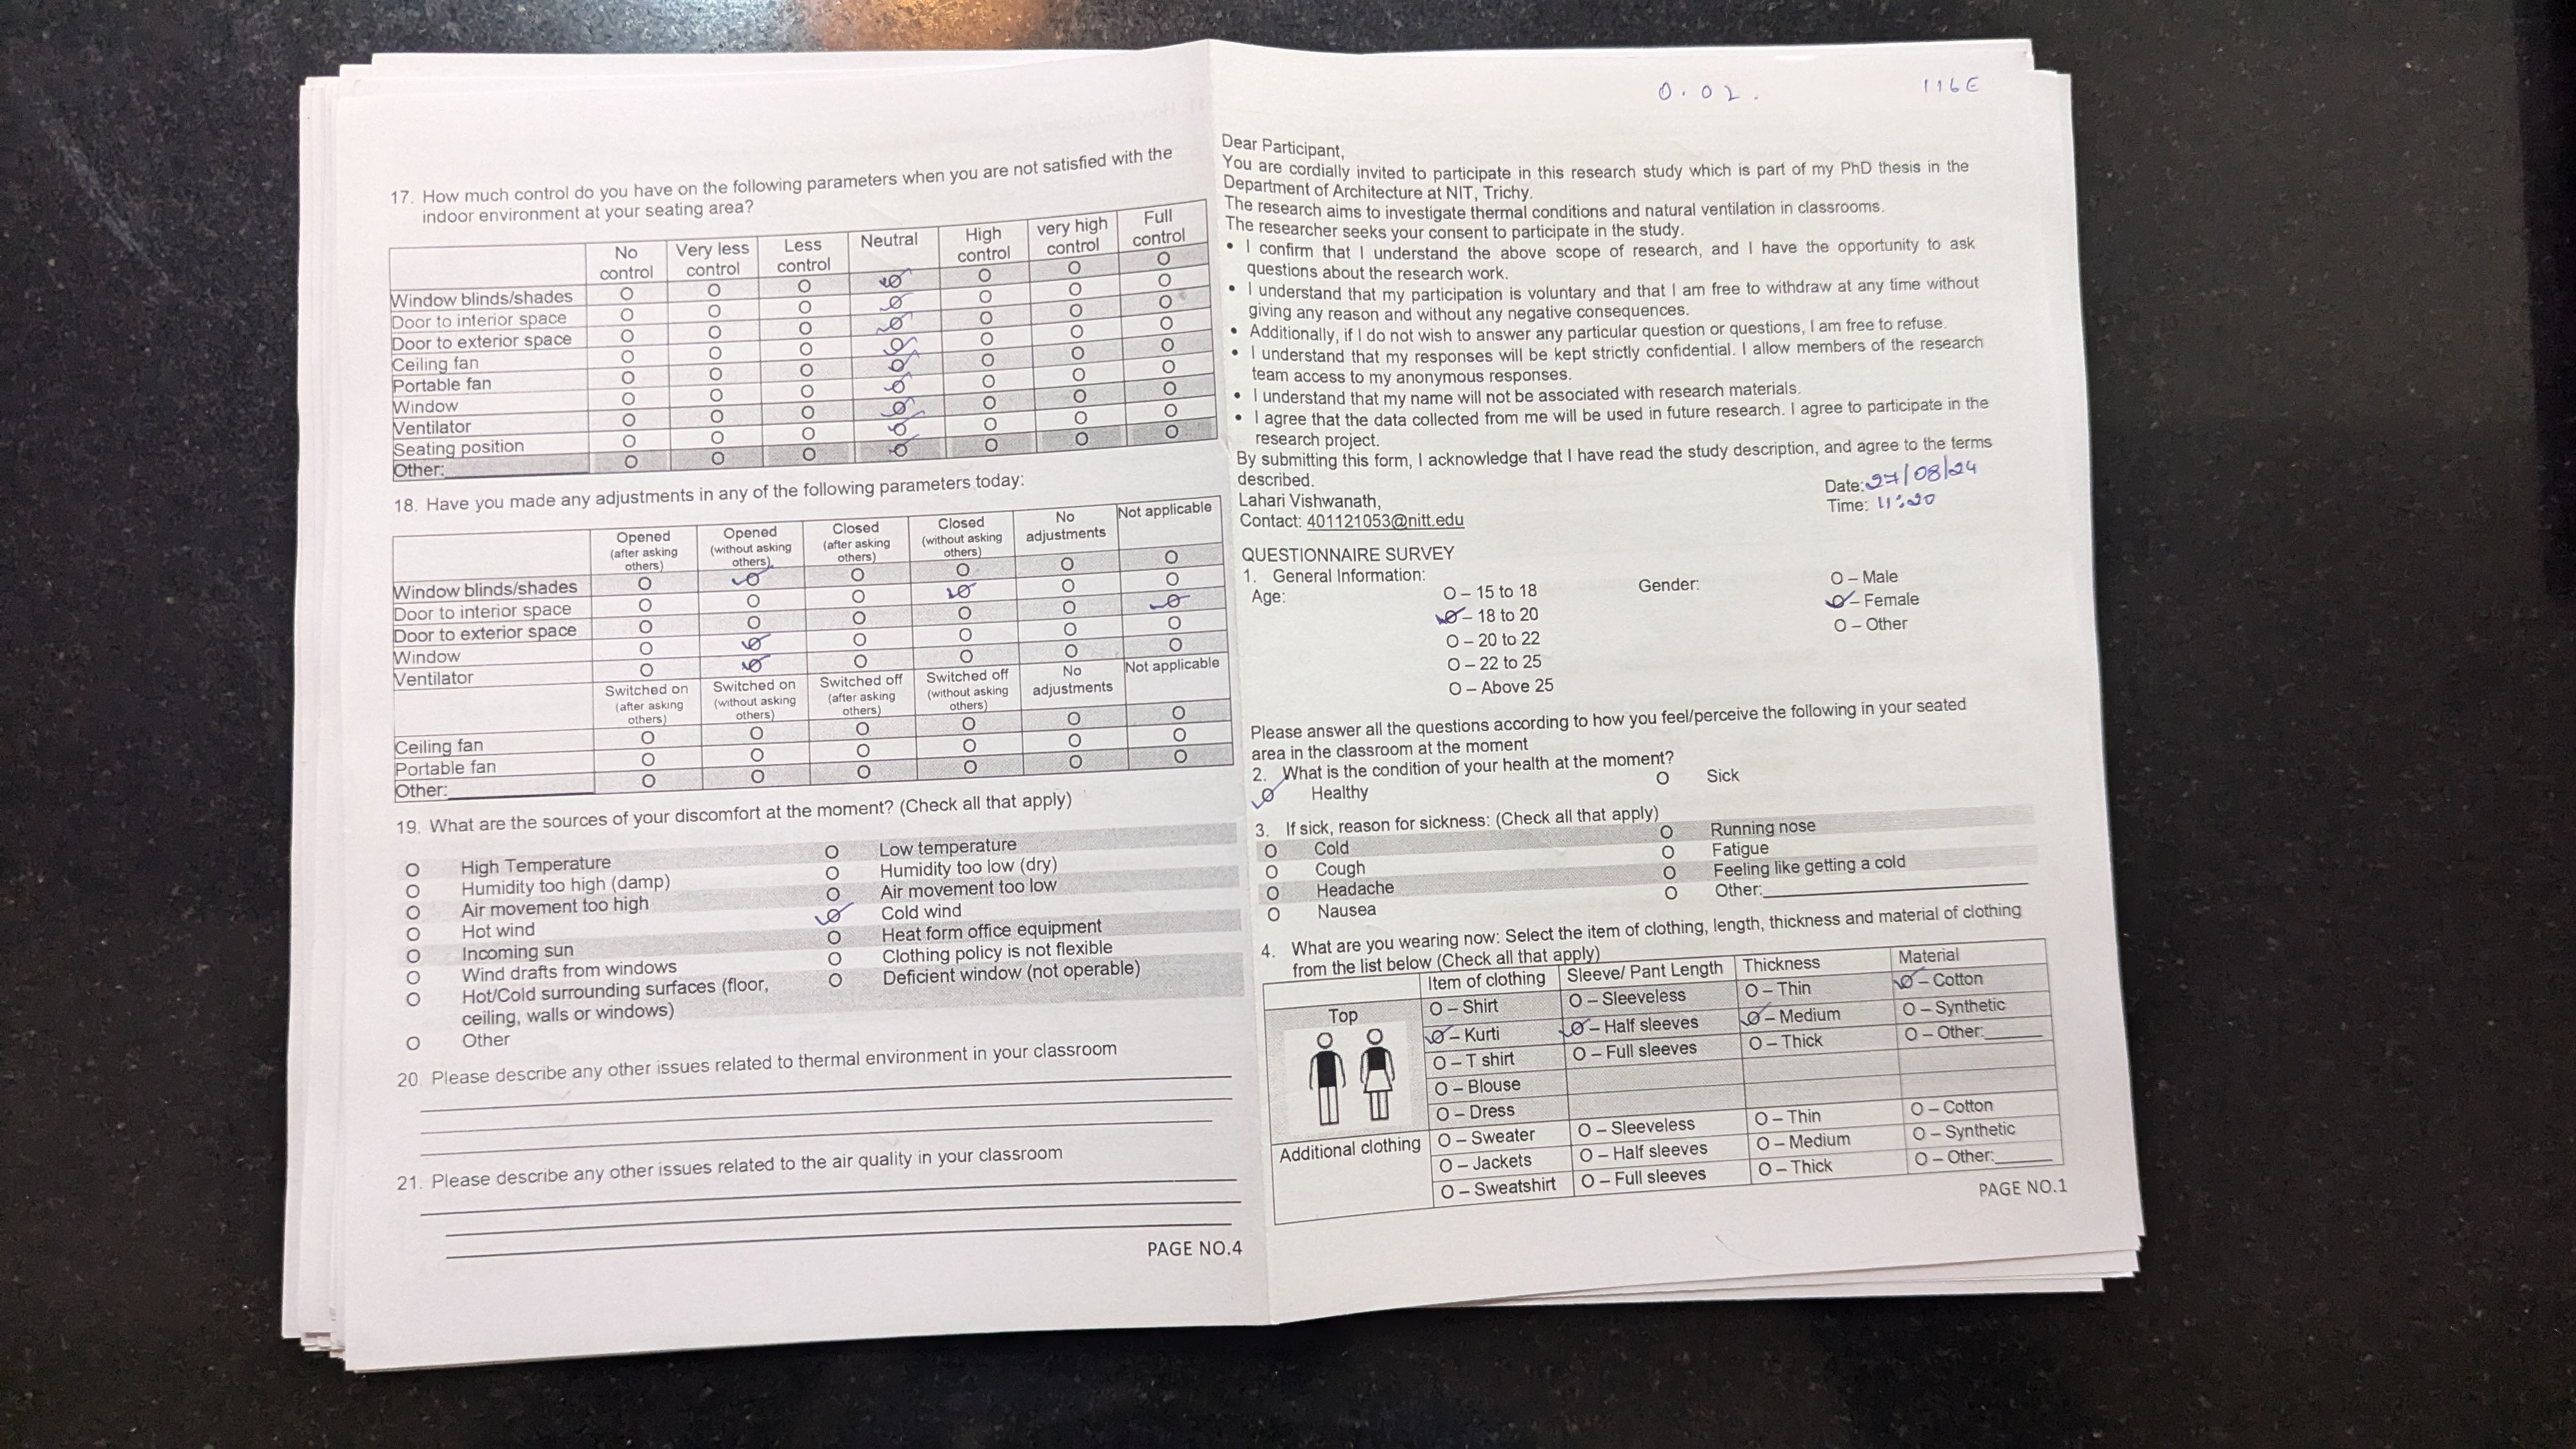 17. How much control do you have on the following parameters when you are not satisfied with the
indoor environment at your seating area?
No control Very less control Less control Neutral High control very high control Full control
Window blinds/shades O O O O O O O
Door to interior space O O O O O O O
Door to exterior space O O O O O O O
Ceiling fan O O O O O O O
Portable fan O O O O O O O
Window O O O O O O O
Ventilator O O O O O O O
Seating position O O O O O O O
Other: O O O O O O O
18. Have you made any adjustments in any of the following parameters today:
Opened (after asking others) Opened (without asking others) Closed (after asking others) Closed (without asking others) No adjustments Not applicable
Window blinds/shades O O O O O O
Door to interior space O O O O O O
Door to exterior space O O O O O O
Window O O O O O O
Ventilator O O O O O O
Switched on (after asking others) Switched on (without asking others) Switched off (after asking others) Switched off (without asking others) No adjustments Not applicable
Ceiling fan O O O O O O
Portable fan O O O O O O
Other: O O O O O O
19. What are the sources of your discomfort at the moment? (Check all that apply)
O High Temperature O Low temperature
O Humidity too high (damp) O Humidity too low (dry)
O Air movement too high O Air movement too low
O Hot wind O Cold wind
O Incoming sun O Heat form office equipment
O Wind drafts from windows O Clothing policy is not flexible
O Hot/Cold surrounding surfaces (floor, O Deficient window (not operable)
ceiling, walls or windows)
O Other
20. Please describe any other issues related to thermal environment in your classroom
21. Please describe any other issues related to the air quality in your classroom
PAGE NO.4
0.02. 116E
Dear Participant,
You are cordially invited to participate in this research study which is part of my PhD thesis in the
Department of Architecture at NIT, Trichy.
The research aims to investigate thermal conditions and natural ventilation in classrooms.
The researcher seeks your consent to participate in the study.
• I confirm that I understand the above scope of research, and I have the opportunity to ask
questions about the research work.
• I understand that my participation is voluntary and that I am free to withdraw at any time without
giving any reason and without any negative consequences.
• Additionally, if I do not wish to answer any particular question or questions, I am free to refuse.
• I understand that my responses will be kept strictly confidential. I allow members of the research
team access to my anonymous responses.
• I understand that my name will not be associated with research materials.
• I agree that the data collected from me will be used in future research. I agree to participate in the
research project.
By submitting this form, I acknowledge that I have read the study description, and agree to the terms
described.
Date: 27/08/24
Lahari Vishwanath,
Time: 11:20
Contact: 401121053@nitt.edu
QUESTIONNAIRE SURVEY
1. General Information:
Age: O – 15 to 18 Gender: O – Male
O – 18 to 20 O – Female
O – 20 to 22 O – Other
O – 22 to 25
O – Above 25
Please answer all the questions according to how you feel/perceive the following in your seated
area in the classroom at the moment
2. What is the condition of your health at the moment?
O Healthy O Sick
3. If sick, reason for sickness: (Check all that apply)
O Cold O Running nose
O Cough O Fatigue
O Headache O Feeling like getting a cold
O Nausea O Other:
4. What are you wearing now: Select the item of clothing, length, thickness and material of clothing
from the list below (Check all that apply)
Item of clothing Sleeve/ Pant Length Thickness Material
Top O – Shirt O – Sleeveless O – Thin O – Cotton
O – Kurti O – Half sleeves O – Medium O – Synthetic
O – T shirt O – Full sleeves O – Thick O – Other:
O – Blouse
O – Dress
Additional clothing O – Sweater O – Sleeveless O – Thin O – Cotton
O – Jackets O – Half sleeves O – Medium O – Synthetic
O – Sweatshirt O – Full sleeves O – Thick O – Other:
PAGE NO.1